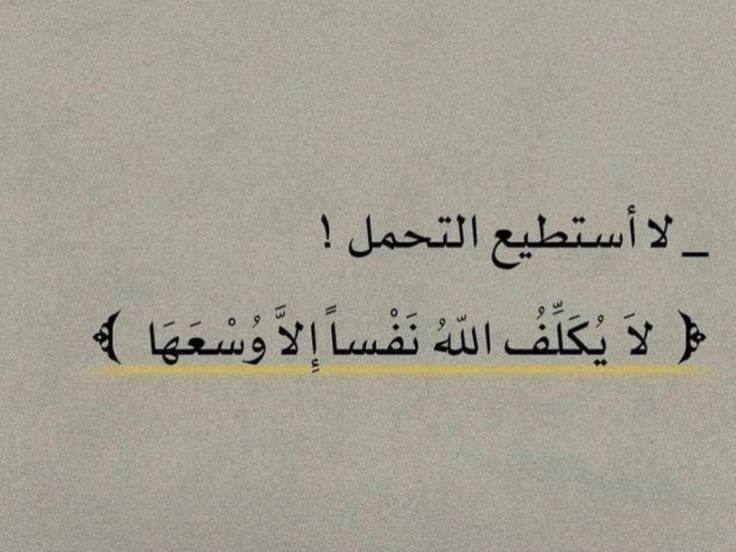 _ لا أستطيع التحمل !
﴿ لاَ يُكَلِّفُ اللّهُ نَفْساً إِلاَّ وُسْعَهَا ﴾